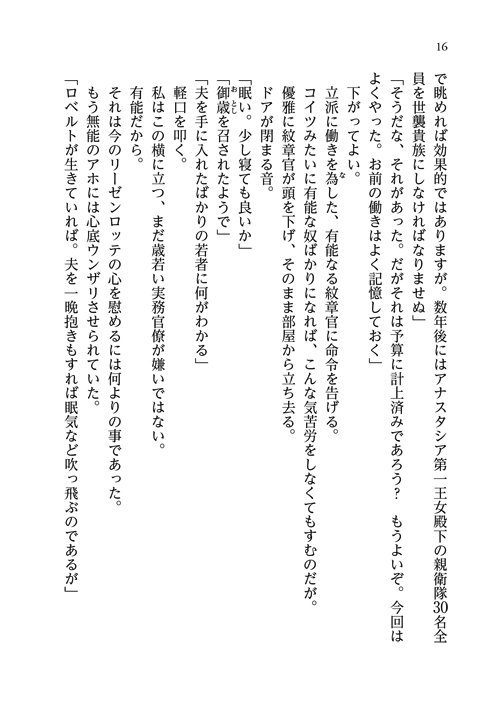 16
で眺めれば効果的ではありますが。数年後にはアナスタシア第一王女殿下の親衛隊30名全
員を世襲貴族にしなければなりませぬ」
「そうだな、それがあった。だがそれは予算に計上済みであろう？　もうよいぞ。今回は
よくやった。お前の働きはよく記憶しておく」
下がってよい。
立派に働きを為した、有能なる紋章官に命令を告げる。
コイツみたいに有能な奴ばかりになれば、こんな気苦労をしなくてもすむのだが。
優雅に紋章官が頭を下げ、そのまま部屋から立ち去る。
ドアが閉まる音。
「眠い。少し寝ても良いか」
「御歳を召されたようで」
「夫を手に入れたばかりの若者に何がわかる」
軽口を叩く。
私はこの横に立つ、まだ歳若い実務官僚が嫌いではない。
有能だから。
それは今のリーゼンロッテの心を慰めるには何よりの事であった。
もう無能のアホには心底ウンザリさせられていた。
「ロベルトが生きていれば。夫を一晩抱きもすれば眠気など吹っ飛ぶのであるが」